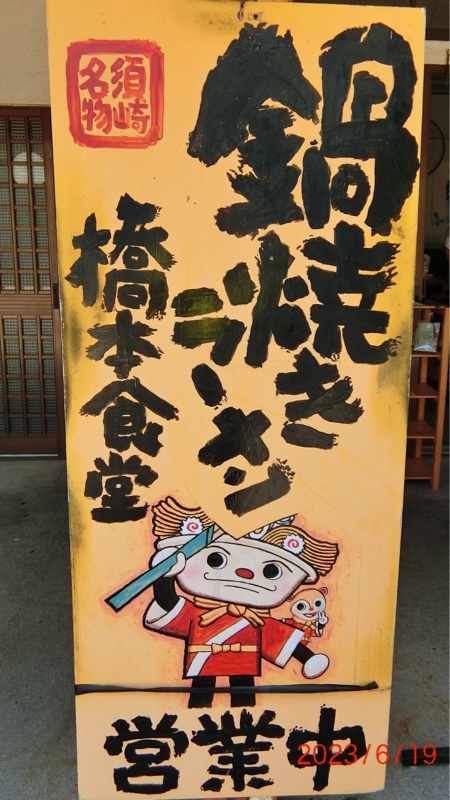 鍋焼き
ラーメン
須崎
名物
橋本食堂
営業中
2023/6/19